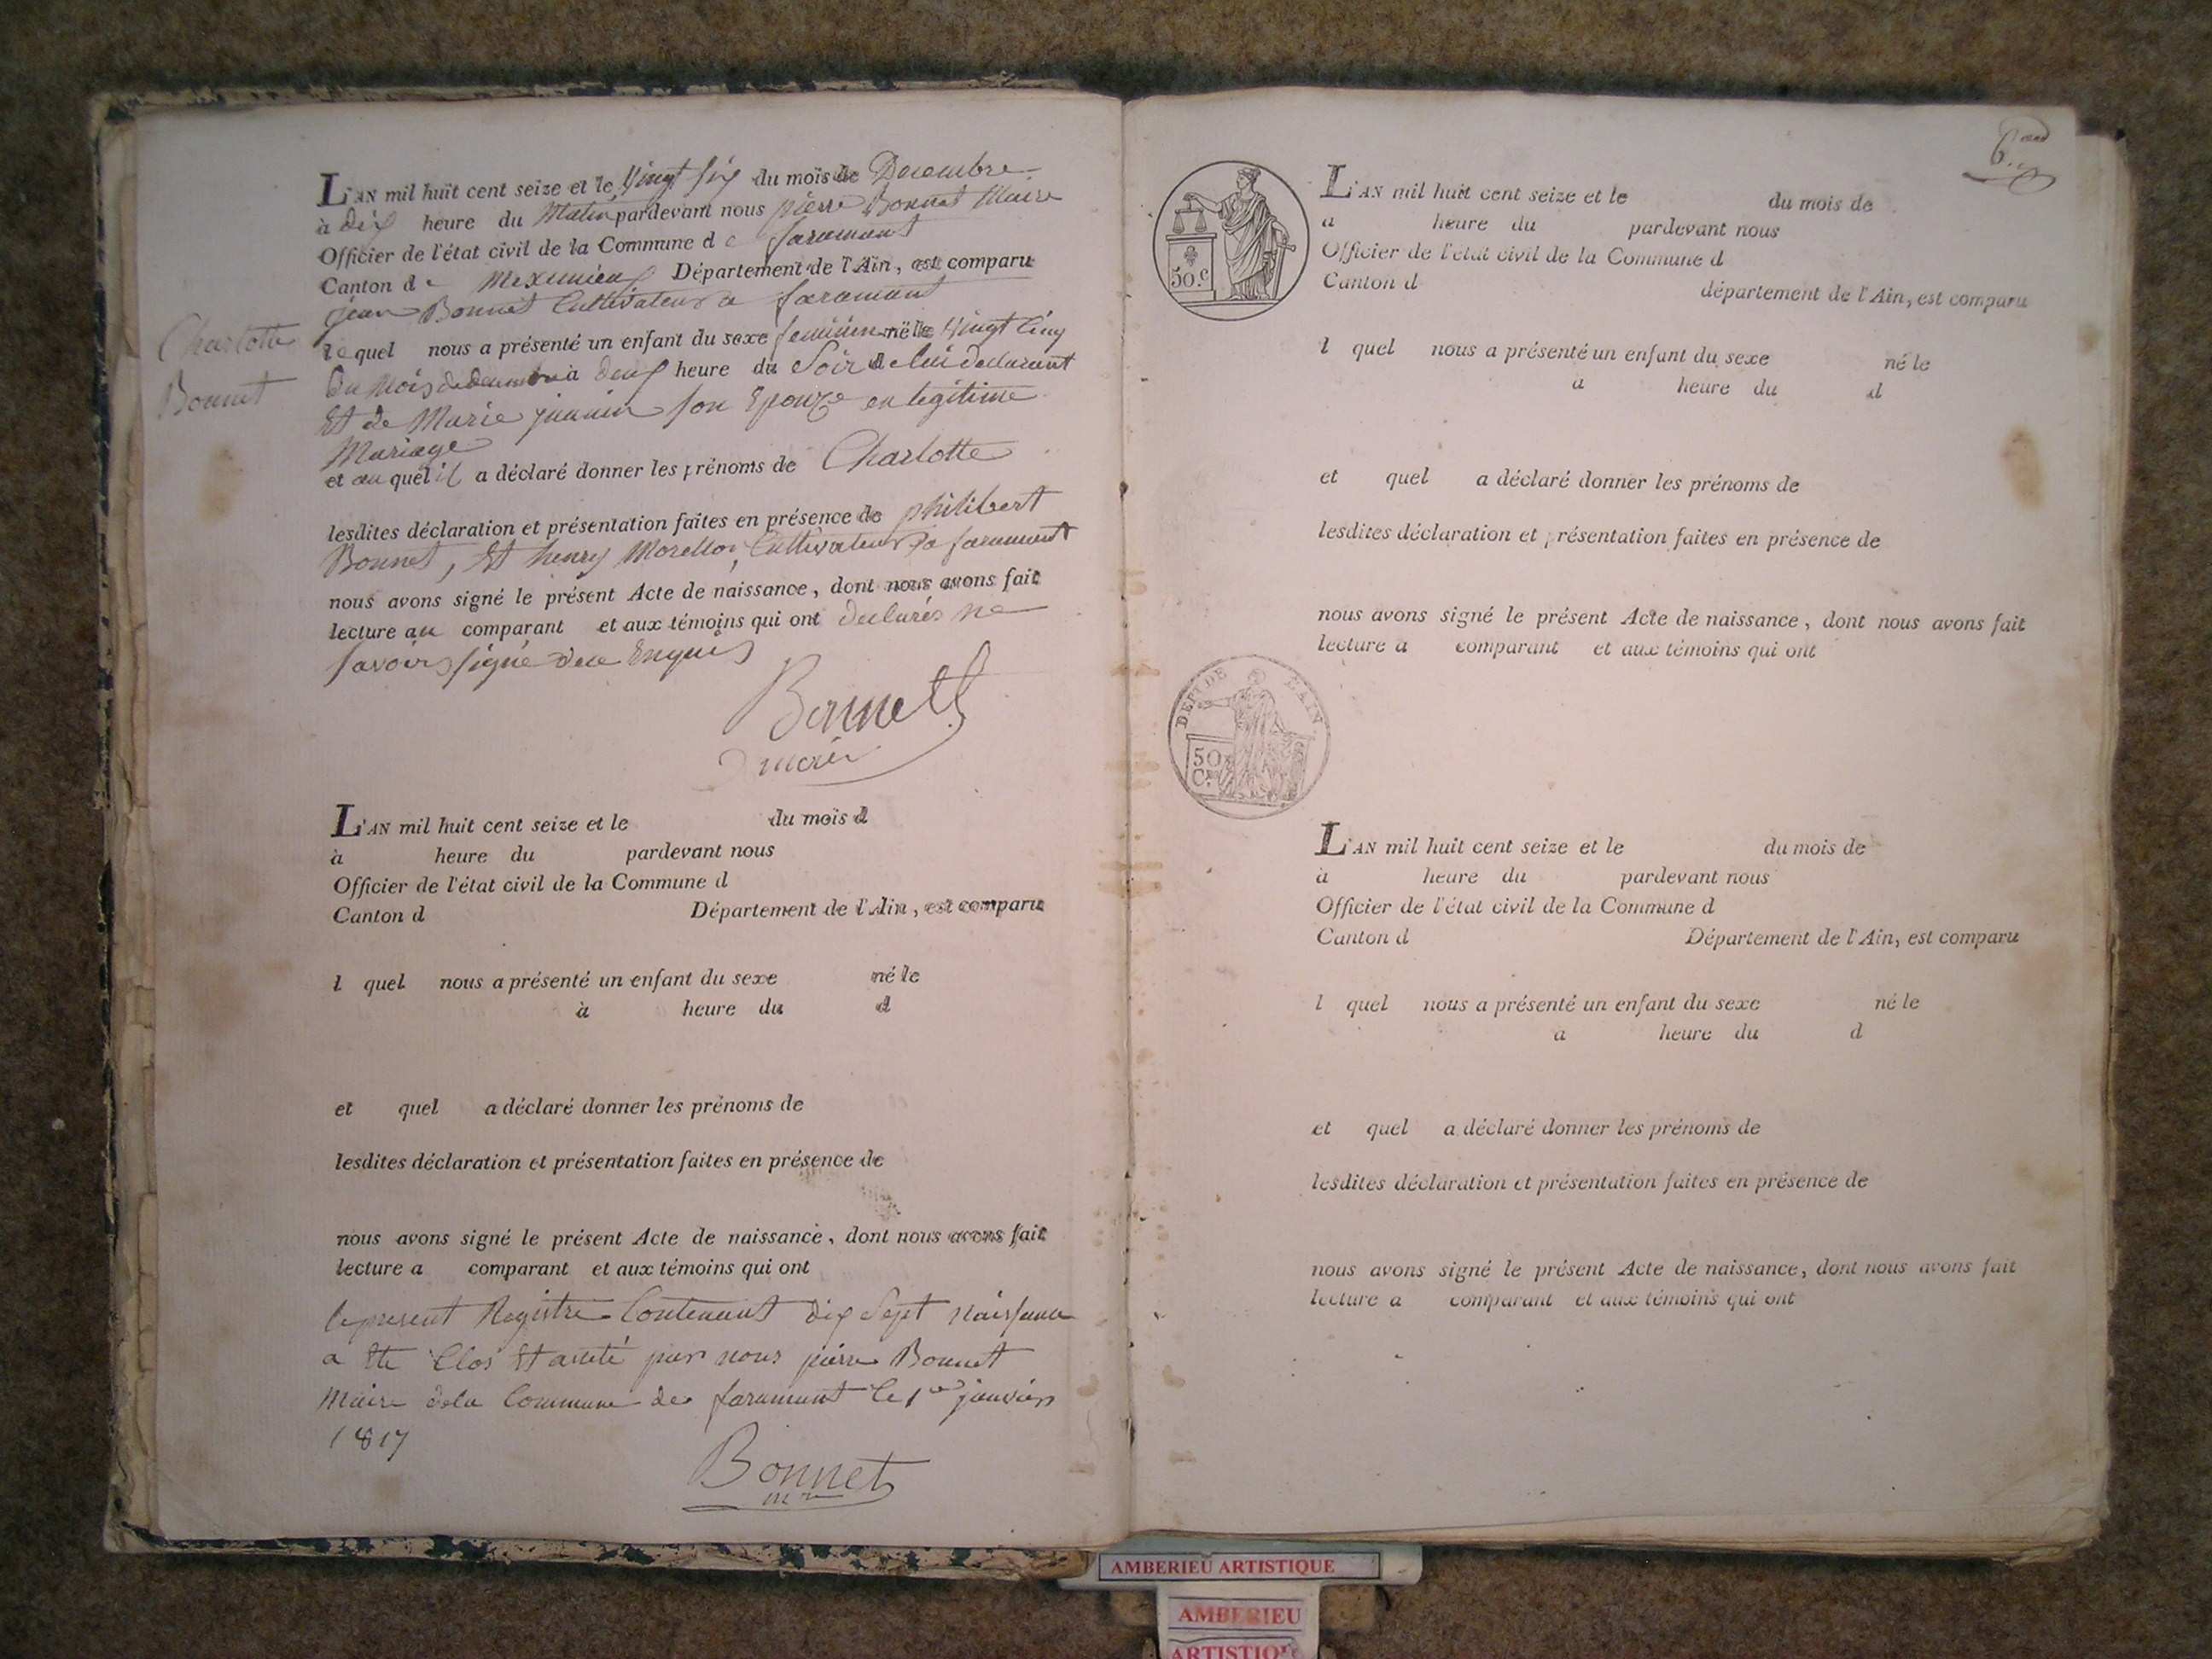 L'AN mil huit cent seize et le Vingt Six du mois de Decembre
à dix heure du Matin pardevant nous pierre Bonnet Maire
Officier de l'état civil de la Commune de faramant
Canton de Meximieux Département de l'Ain, est comparu
jean Bonnet Cultivateur a faramant
Charlotte
Bonnet
lequel nous a présenté un enfant du sexe feminin né le Vingt Cinq
du Mois de decembre à deux heure du Soir de lui declarant
Et de Marie jannin son Epouze en legitime
Mariage
et au quel il a déclaré donner les prénoms de Charlotte
lesdites déclaration et présentation faites en présence de philibert
Bonnet, Et henry Morellon Cultivateurs a faramant
nous avons signé le présent Acte de naissance, dont nous avons fait
lecture au comparant et aux témoins qui ont declarés ne
savoir signé de ce Enquis
Bonnet
maire
L'AN mil huit cent seize et le du mois d
à heure du pardevant nous
Officier de l'état civil de la Commune d
Canton d Département de l'Ain, est comparu
l quel nous a présenté un enfant du sexe né le
à heure du d
et quel a déclaré donner les prénoms de
lesdites déclaration et présentation faites en présence de
nous avons signé le présent Acte de naissance, dont nous avons fait
lecture a comparant et aux témoins qui ont
le present Registre Contenant dix Sept naissance
a Ete Clos Et arreté par nous pierre Bonnet
Maire de la Commune de faramant le 1er janvier
1817
Bonnet
mre
50.c
L'AN mil huit cent seize et le du mois de
a heure du pardevant nous
Officier de l'état civil de la Commune d
Canton d département de l'Ain, est comparu
l quel nous a présenté un enfant du sexe né le
a heure du d
et quel a déclaré donner les prénoms de
lesdites déclaration et présentation faites en présence de
nous avons signé le présent Acte de naissance, dont nous avons fait
lecture a comparant et aux témoins qui ont
DEP. DE L'AIN
50
C.
L'AN mil huit cent seize et le du mois de
à heure du pardevant nous
Officier de l'état civil de la Commune d
Canton d Département de l'Ain, est comparu
l quel nous a présenté un enfant du sexe né le
a heure du d
et quel a déclaré donner les prénoms de
lesdites déclaration et présentation faites en présence de
nous avons signé le présent Acte de naissance, dont nous avons fait
lecture a comparant et aux témoins qui ont
AMBERIEU ARTISTIQUE
AMBERIEU
ARTISTIQUE